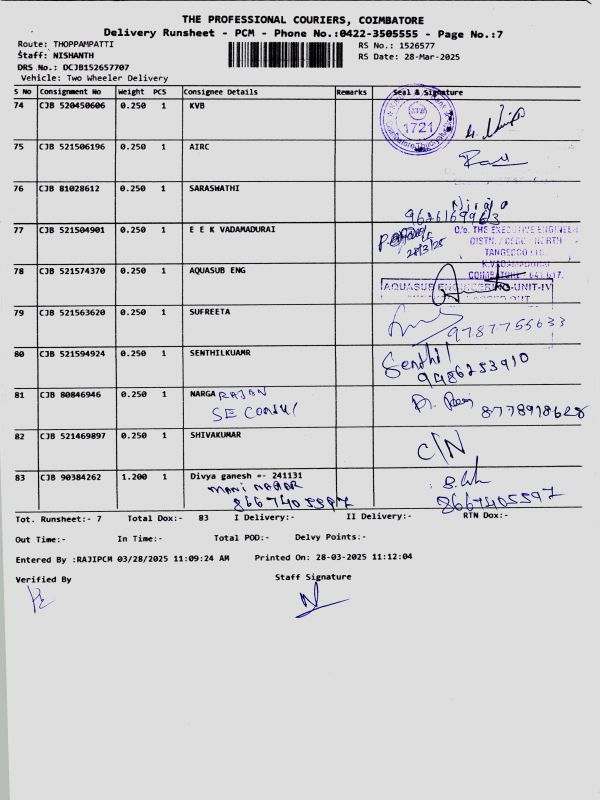 THE PROFESSIONAL COURIERS, COIMBATORE
Delivery Runsheet - PCM - Phone No.:0422-3505555 - Page No.:7
Route: THOPPAMPATTI
RS No.: 1526577
Staff: NISHANTH
RS Date: 28-Mar-2025
DRS No.: DCJB152657707
Vehicle: Two Wheeler Delivery
S No Consignment No Weight PCS Consignee Details Remarks Seal & Signature
74 CJB 520450606 0.250 1 KVB
1721
75 CJB 521506196 0.250 1 AIRC
76 CJB 81028612 0.250 1 SARASWATHI
9626169963
77 CJB 521504901 0.250 1 E E K VADAMADURAI
O/o. THE EXECUTIVE ENGINEER
DISTN. / CEDC / NORTH
28/3/25
TANGEDCO LTD.
K.VADAMADURAI
COIMBATORE - 641 017.
78 CJB 521574370 0.250 1 AQUASUB ENG
AQUASUB ENGINEERING-UNIT-IV
79 CJB 521563620 0.250 1 SUFREETA
9787755633
80 CJB 521594924 0.250 1 SENTHILKUAMR
Senthil
9486253910
81 CJB 80846946 0.250 1 NARGA RAJAN
SE
8778918628
82 CJB 521469897 0.250 1 SHIVAKUMAR
C/N
83 CJB 90384262 1.200 1 Divya ganesh -- 241131
MANI NAGAR
8667405597
8667405597
Tot. Runsheet:- 7 Total Dox:- 83 I Delivery:- II Delivery:- RTN Dox:-
Out Time:- In Time:- Total POD:- Delvy Points:-
Entered By :RAJIPCM 03/28/2025 11:09:24 AM Printed On: 28-03-2025 11:12:04
Verified By Staff Signature